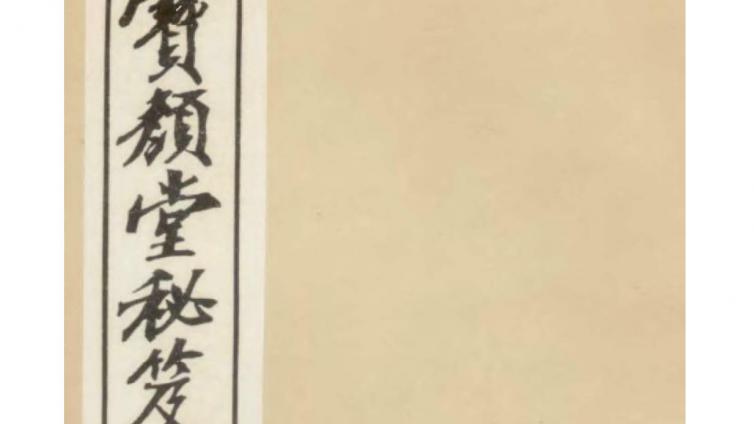 寶顏堂秘笈